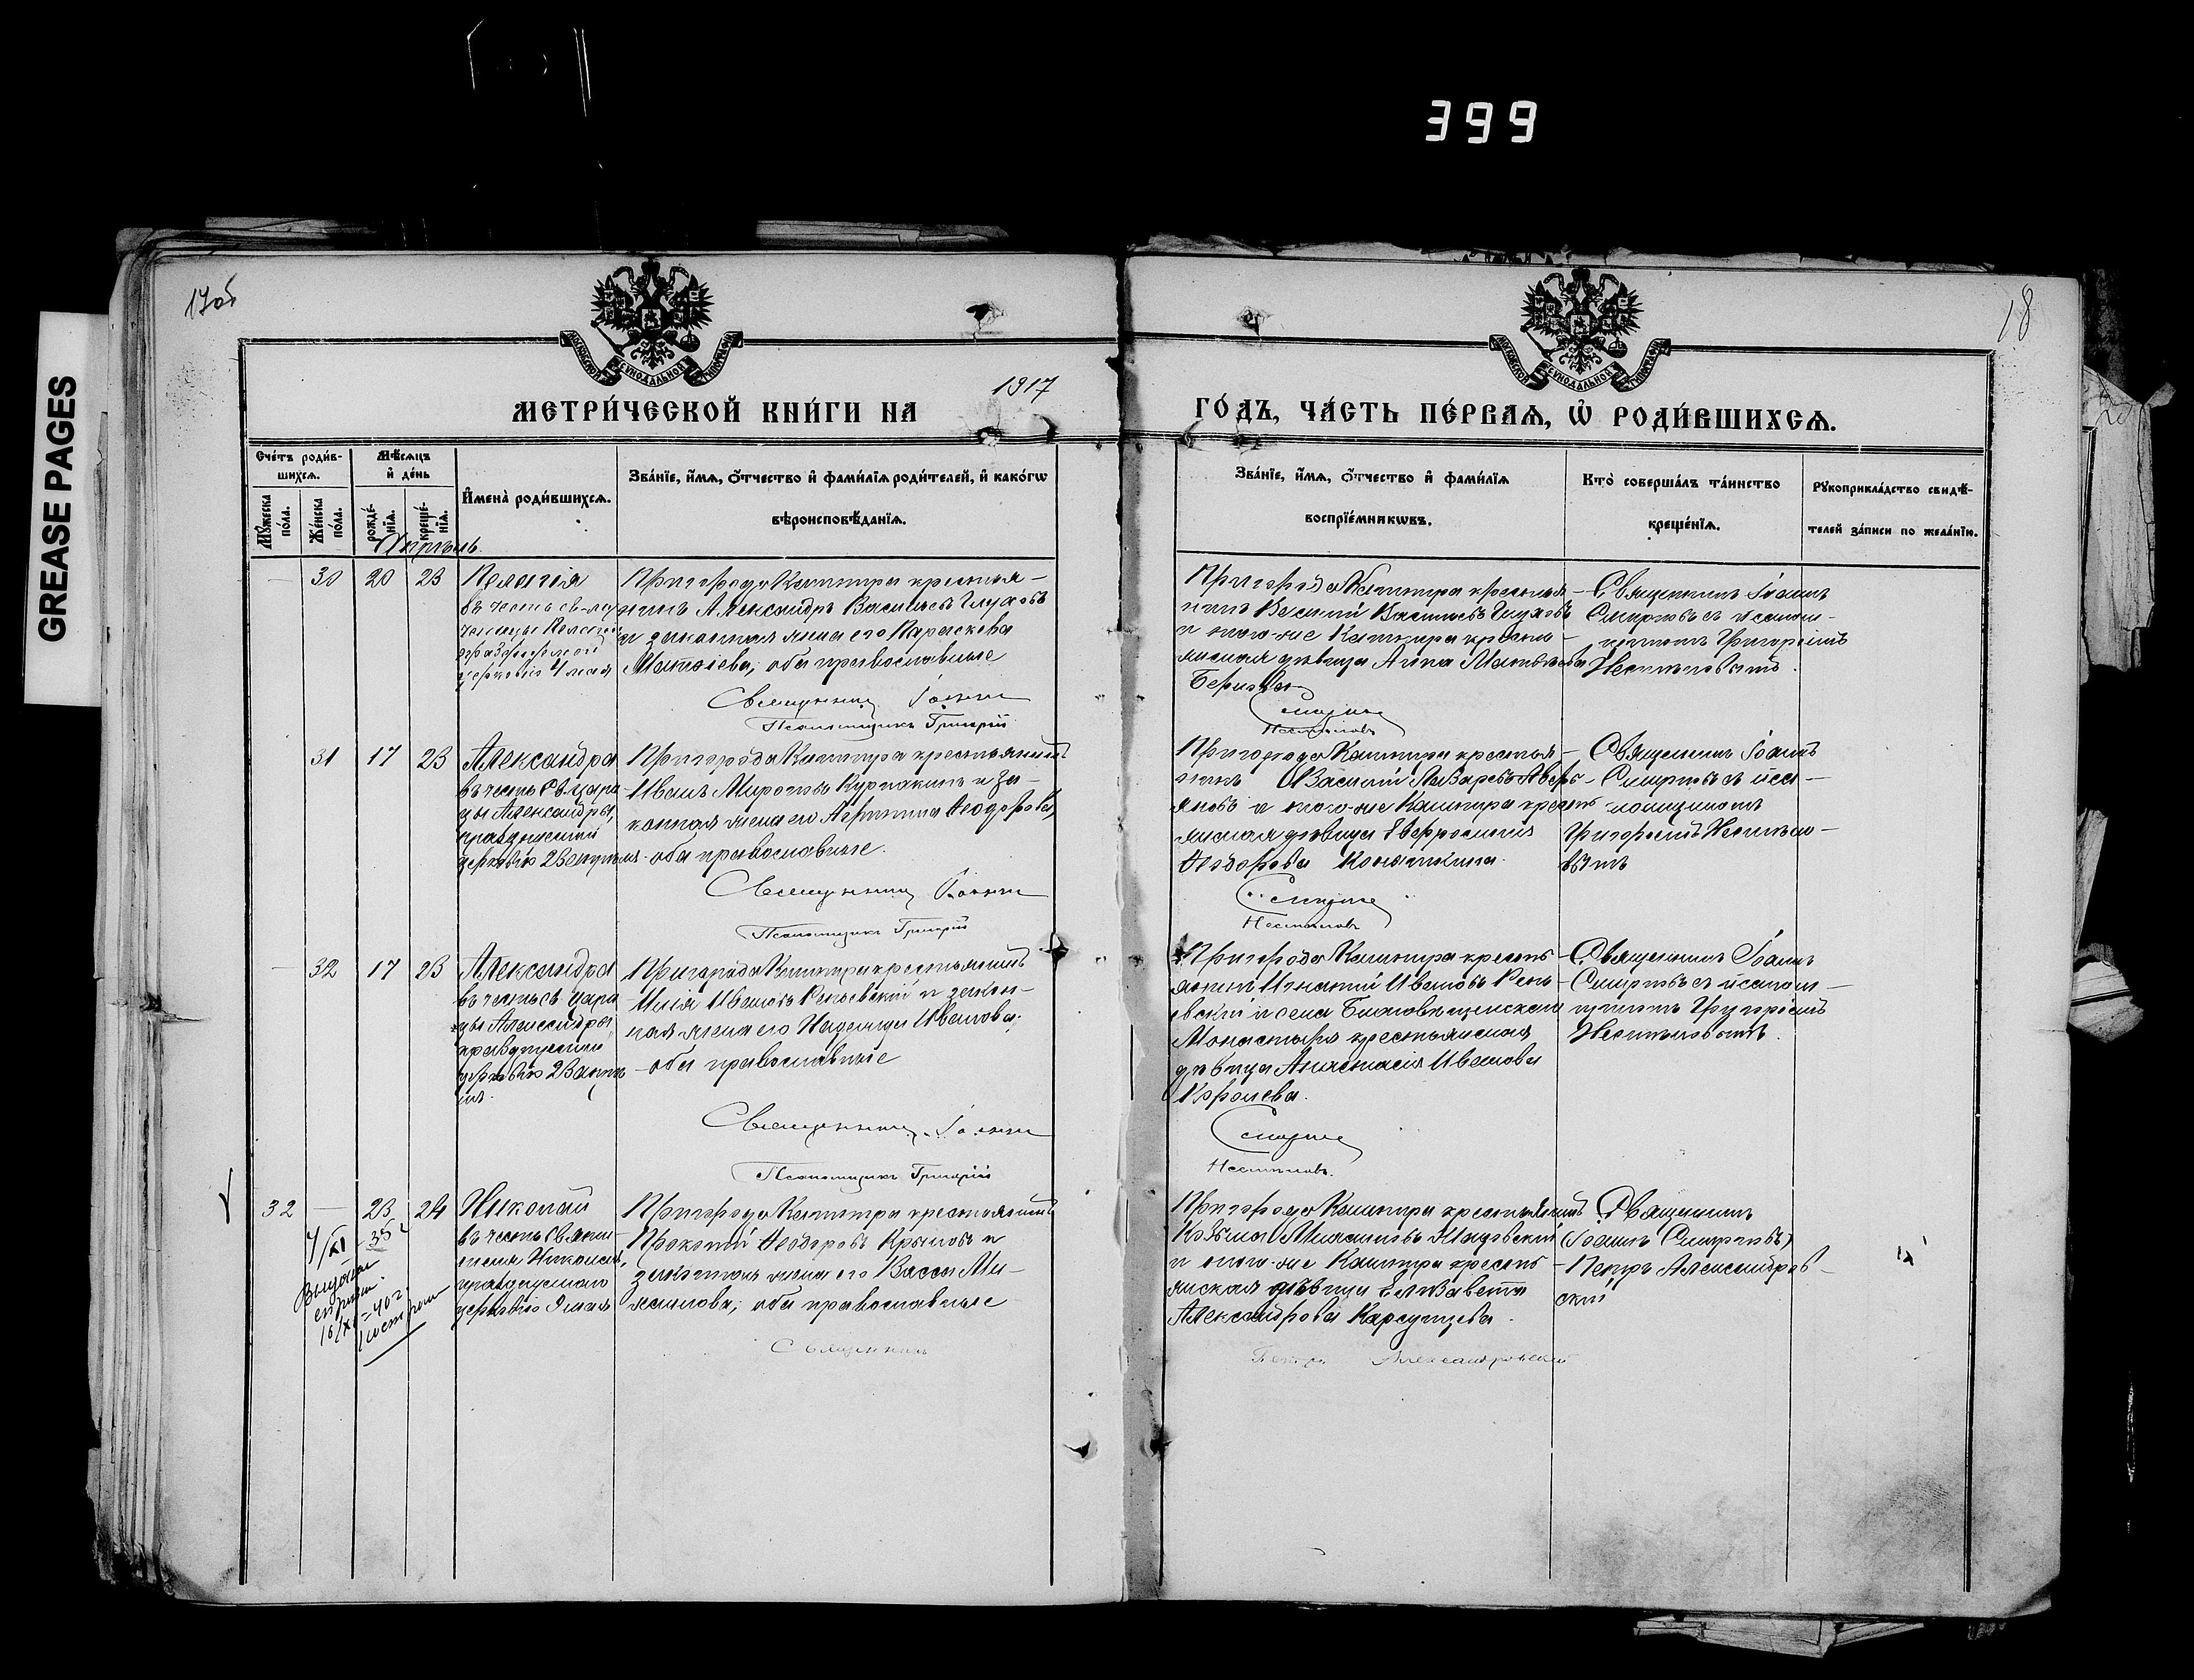 399
GREASE PAGES
17об
18
МОСКОВСКОЙ СѴНОДАЛЬНОЙ ТИПОГРАФІИ
МОСКОВСКОЙ СѴНОДАЛЬНОЙ ТИПОГРАФІИ
МЕТРИ́ЧЕСКОЙ КНИ́ГИ НА 1917 ГО́ДЪ, ЧА́СТЬ ПЕ́РВАѦ, Ѡ҆ РОДИ́ВШИХСѦ.
Сче́тъ роди́в-
шихсѧ.
Мꙋ́жеска по́ла.
Же́нска по́ла.
Мѣ́сѧцъ
и҆ де́нь
рожде́-нїѧ.
креще́-нїѧ.
И҆мена̀ роди́вшихсѧ.
Зва́нїе, и҆́мѧ, ѻ҆́тчество и҆ фами́лїѧ роди́телей, и҆ како́гѡ
вѣроисповѣ́данїѧ.
Зва́нїе, и҆́мѧ, ѻ҆́тчество и҆ фами́лїѧ
воспрїе́мникѡвъ.
Кто̀ соверша́лъ та́инство
креще́нїѧ.
Рꙋкоприкла́дство свидѣ́-
телей за́писи по жела́нїю.
Апрѣль.
30 20 23
Пелагія
въ честь св. му-
ченицы Пелагеи
церковію 4 мая
Пригорода Кашпира крестья-
нинъ Александръ Васильевъ Глуховъ
и законная жена его Параскева
Матѳіева, оба православные
Священникъ Іоаннъ
Псаломщикъ Григорій
Пригорода Кашпира крестья-
нинъ Василій Васильевъ Глуховъ
и того-же Кашпира крестьян-
янская дѣвица Анна
Священникъ Іоаннъ
Смирновъ съ псалом-
щикомъ Григоріемъ
Смирновъ
31 17 23
Александра
въ честь св. цари-
цы Александры,
празднуемой
церковію 23 апрѣля
Пригорода Кашпира крестьянинъ
Иванъ Мироновъ Курпакинъ и за-
конная жена его Агрипина Ѳеодорова,
оба православные.
Священникъ Іоаннъ
Псаломщикъ Григорій
Пригорода Кашпира крестья-
нинъ Василій Лазаревъ Аверь-
яновъ и того-же Кашпира кресть-
янская дѣвица Евфросинія
Ѳеодорова
Священникъ Іоаннъ
Смирновъ съ псал-
омщикомъ
Григоріемъ
Смирновъ
32 17 23
Александра
въ честь св. цари-
цы Александры
празднуемой
церковію 23 апрѣ-
ля.
Пригорода Кашпира крестьянинъ
Илія Ивановъ Реньевскій и закон-
ная жена его Надежда Иванова,
оба православные
Священникъ Іоаннъ
Псаломщикъ Григорій
Пригорода Кашпира кресть-
янинъ Игнатій Ивановъ Рень-
евскій и села Благовѣщенскаго
Монастыря крестьянская
дѣвица Анастасія Иванова
Королева.
Священникъ Іоаннъ
Смирновъ съ псалом-
щикомъ Григоріемъ
Смирновъ
32 23 24
Николай
въ честь святи-
теля Николая,
празднуемаго
церковію 9 мая
Пригорода Кашпира крестьянинъ
Прокопій Ѳеодоровъ Крыловъ и
законная жена его Васса Ми-
хаилова, оба православные
Священникъ
Пригорода Кашпира крестьянинъ
Козьма
и того-же Кашпира кресть-
янская дѣвица Елизавета
Александрова
Петръ Александровскій
Священникъ
(Іоаннъ Смирновъ)
Петръ Александров-
скій